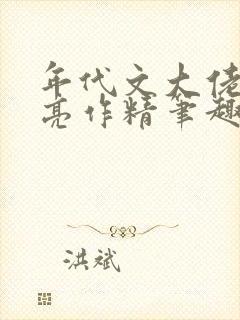 年代文大佬
亮作精笔趣
洪斌